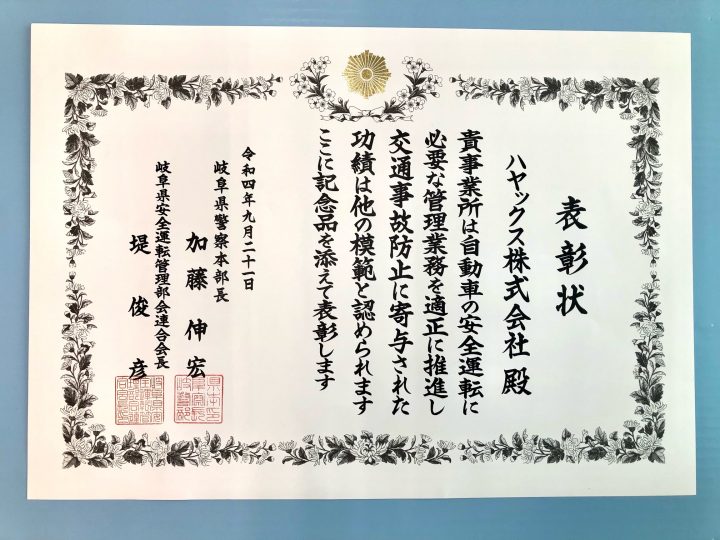 表彰状
ハヤックス株式会社 殿
貴事業所は自動車の安全運転に
必要な管理業務を適正に推進し
交通事故防止に寄与された
功績は他の模範と認められます
ここに記念品を添えて表彰します
令和四年九月二十一日
岐阜県警察本部長
加藤伸宏
岐阜県安全運転管理部会連合会長
堤俊彦